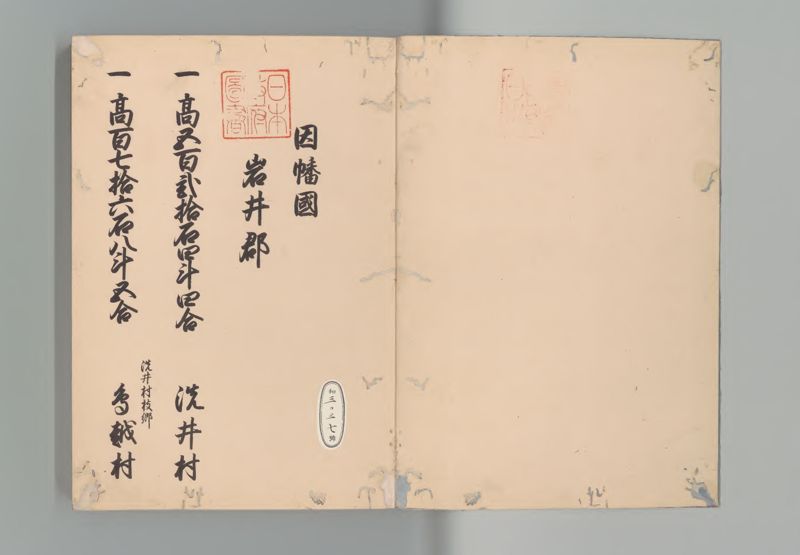 因幡國
岩井郡
日本
政府
圖書
一 高五百貳拾石四斗四合 洗井村
一 高百七拾六石八斗五合 洗井村枝郷 鳥越村